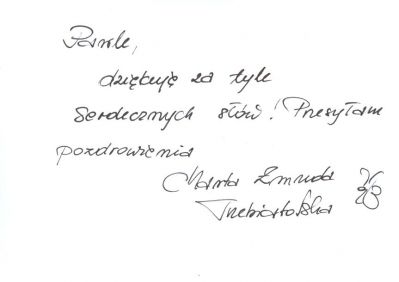 Pawle,
dziękuję za tyle
serdecznych słów! Przesyłam
pozdrowienia
Marta Żmuda
Trzebiatowska